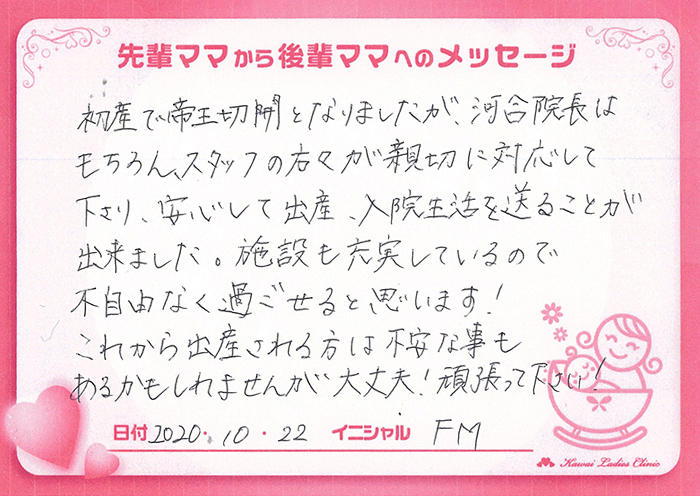 先輩ママから後輩ママへのメッセージ
初産で帝王切開となりましたが、河合院長は
もちろん、スタッフの方々が親切に対応して
下さり、安心して出産、入院生活を送ることが
出来ました。施設も充実しているので
不自由なく過ごせると思います!
これから出産される方は不安な事も
あるかもしれませんが大丈夫!頑張って下さい!
日付 2020.10.22 イニシャル FM
Kawai Ladies Clinic